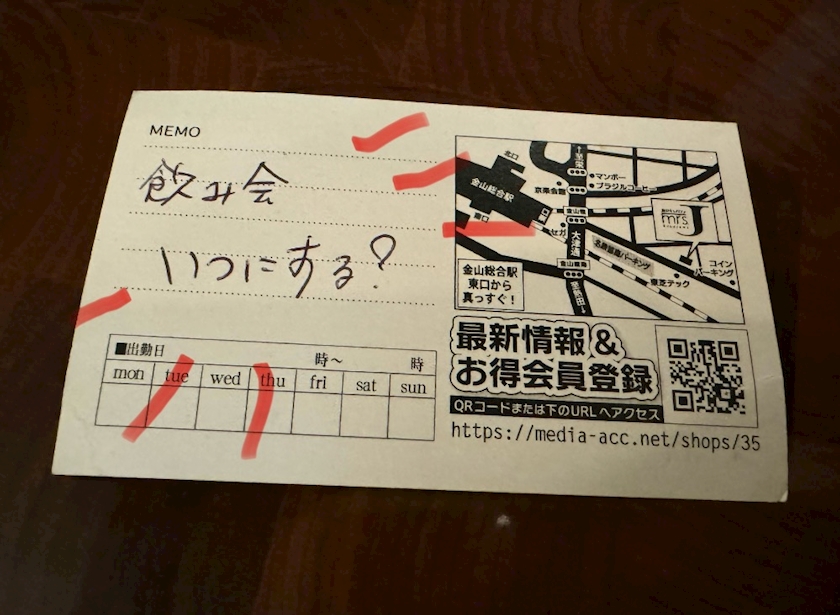 MEMO
飲み会
いつにする?
■出勤日 時～ 時
mon tue wed thu fri sat sun
北口
至栄
マンボー
ブラジルコーヒー
金山総合駅
南口
セガ
大津通
mrs.
J
コイン
パーキング
東芝テック
至熱田
金山総合駅
東口から
真っすぐ!
最新情報&
お得会員登録
QRコードまたは下のURLへアクセス
https://media-acc.net/shops/35